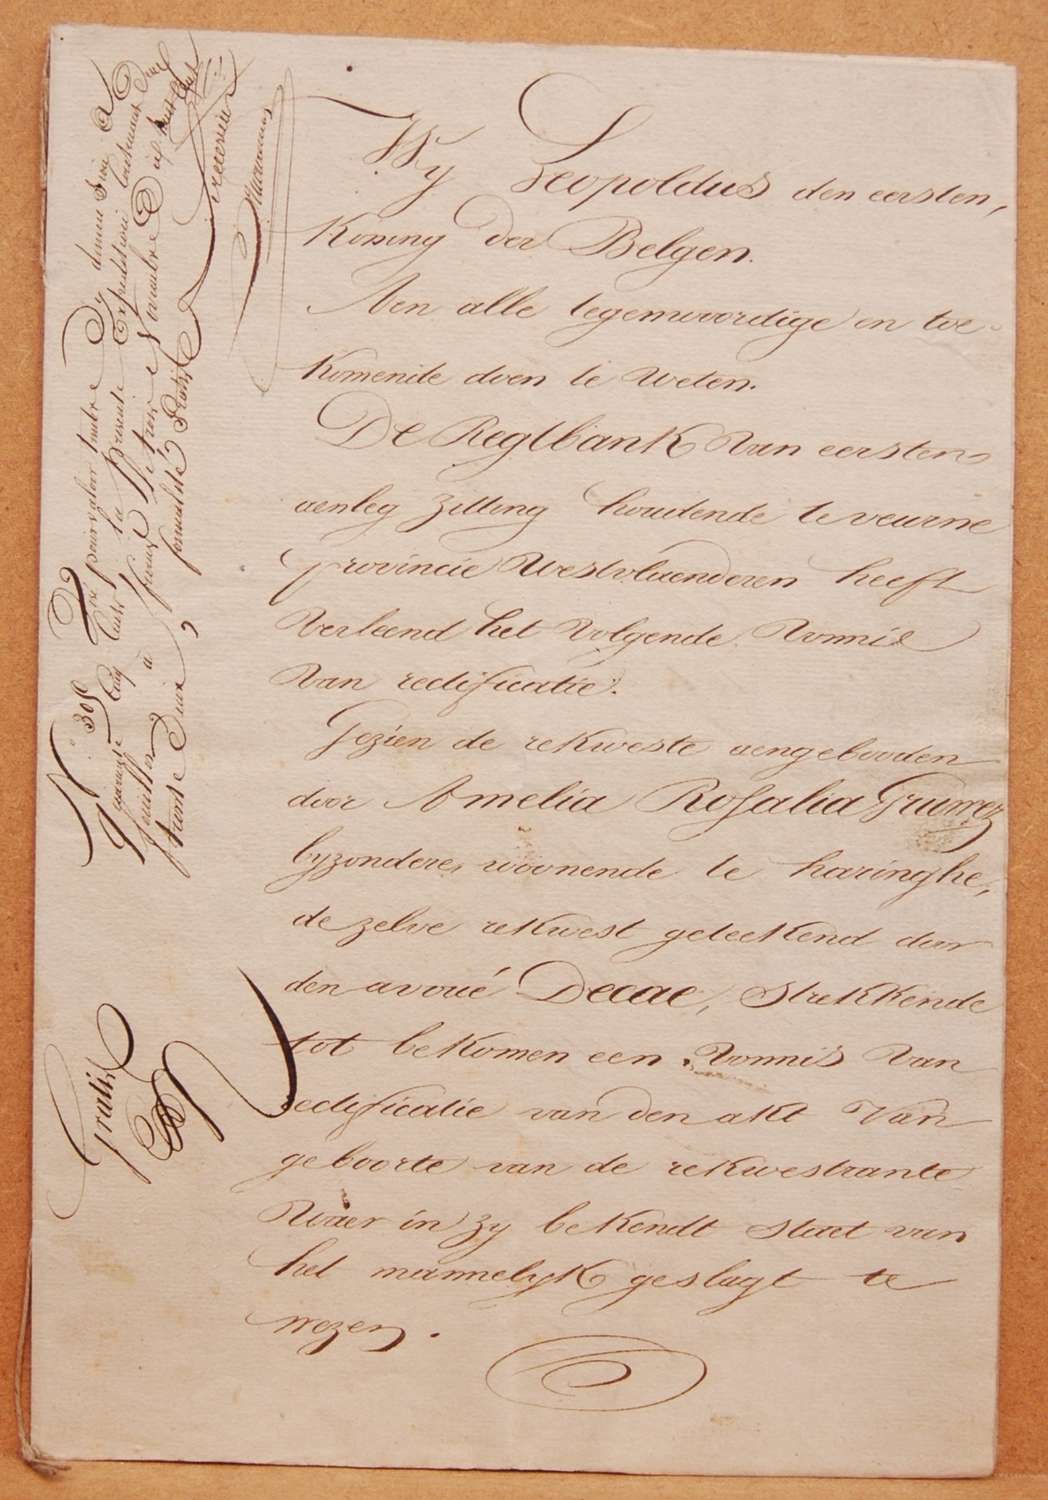 Wy Leopoldus den eersten,
Koning der Belgen.
Aen alle tegenwoordige en toe-
komende doen te weten.
De Regtbank van eersten
aenleg zitting houdende te veurne
provincie Westvlaenderen heeft
verleend het volgende vonnis
van rectificatie.
Gezien de rekweste aengebooden
door Amelia Rosalia Gruwez
byzondere, woonende te haringhe,
de zelve rekwest geteekend door
den avoué Decae, strekkende
tot bekomen een vonnis van
rectificatie van den akt van
geboorte van de rekwestrante
waer in zy bekendt staet van
het mannelyk geslagt te
wezen.
N° 305
pour valoir timbre
la présente Expédition contenant
feuilles à
formalité Gratis
receveur
Gratis